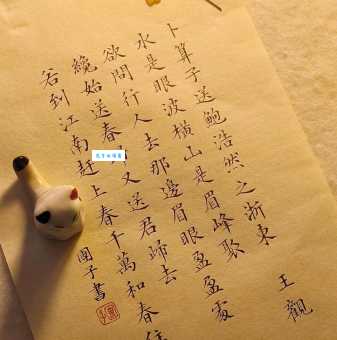 卜算子送鮑浩然之浙東
王觀
水是眼波橫山是眉峰聚
欲問行人去那邊眉眼盈盈處
纔始送春又送君歸去
若到江南趕上春千萬和春住
團子書